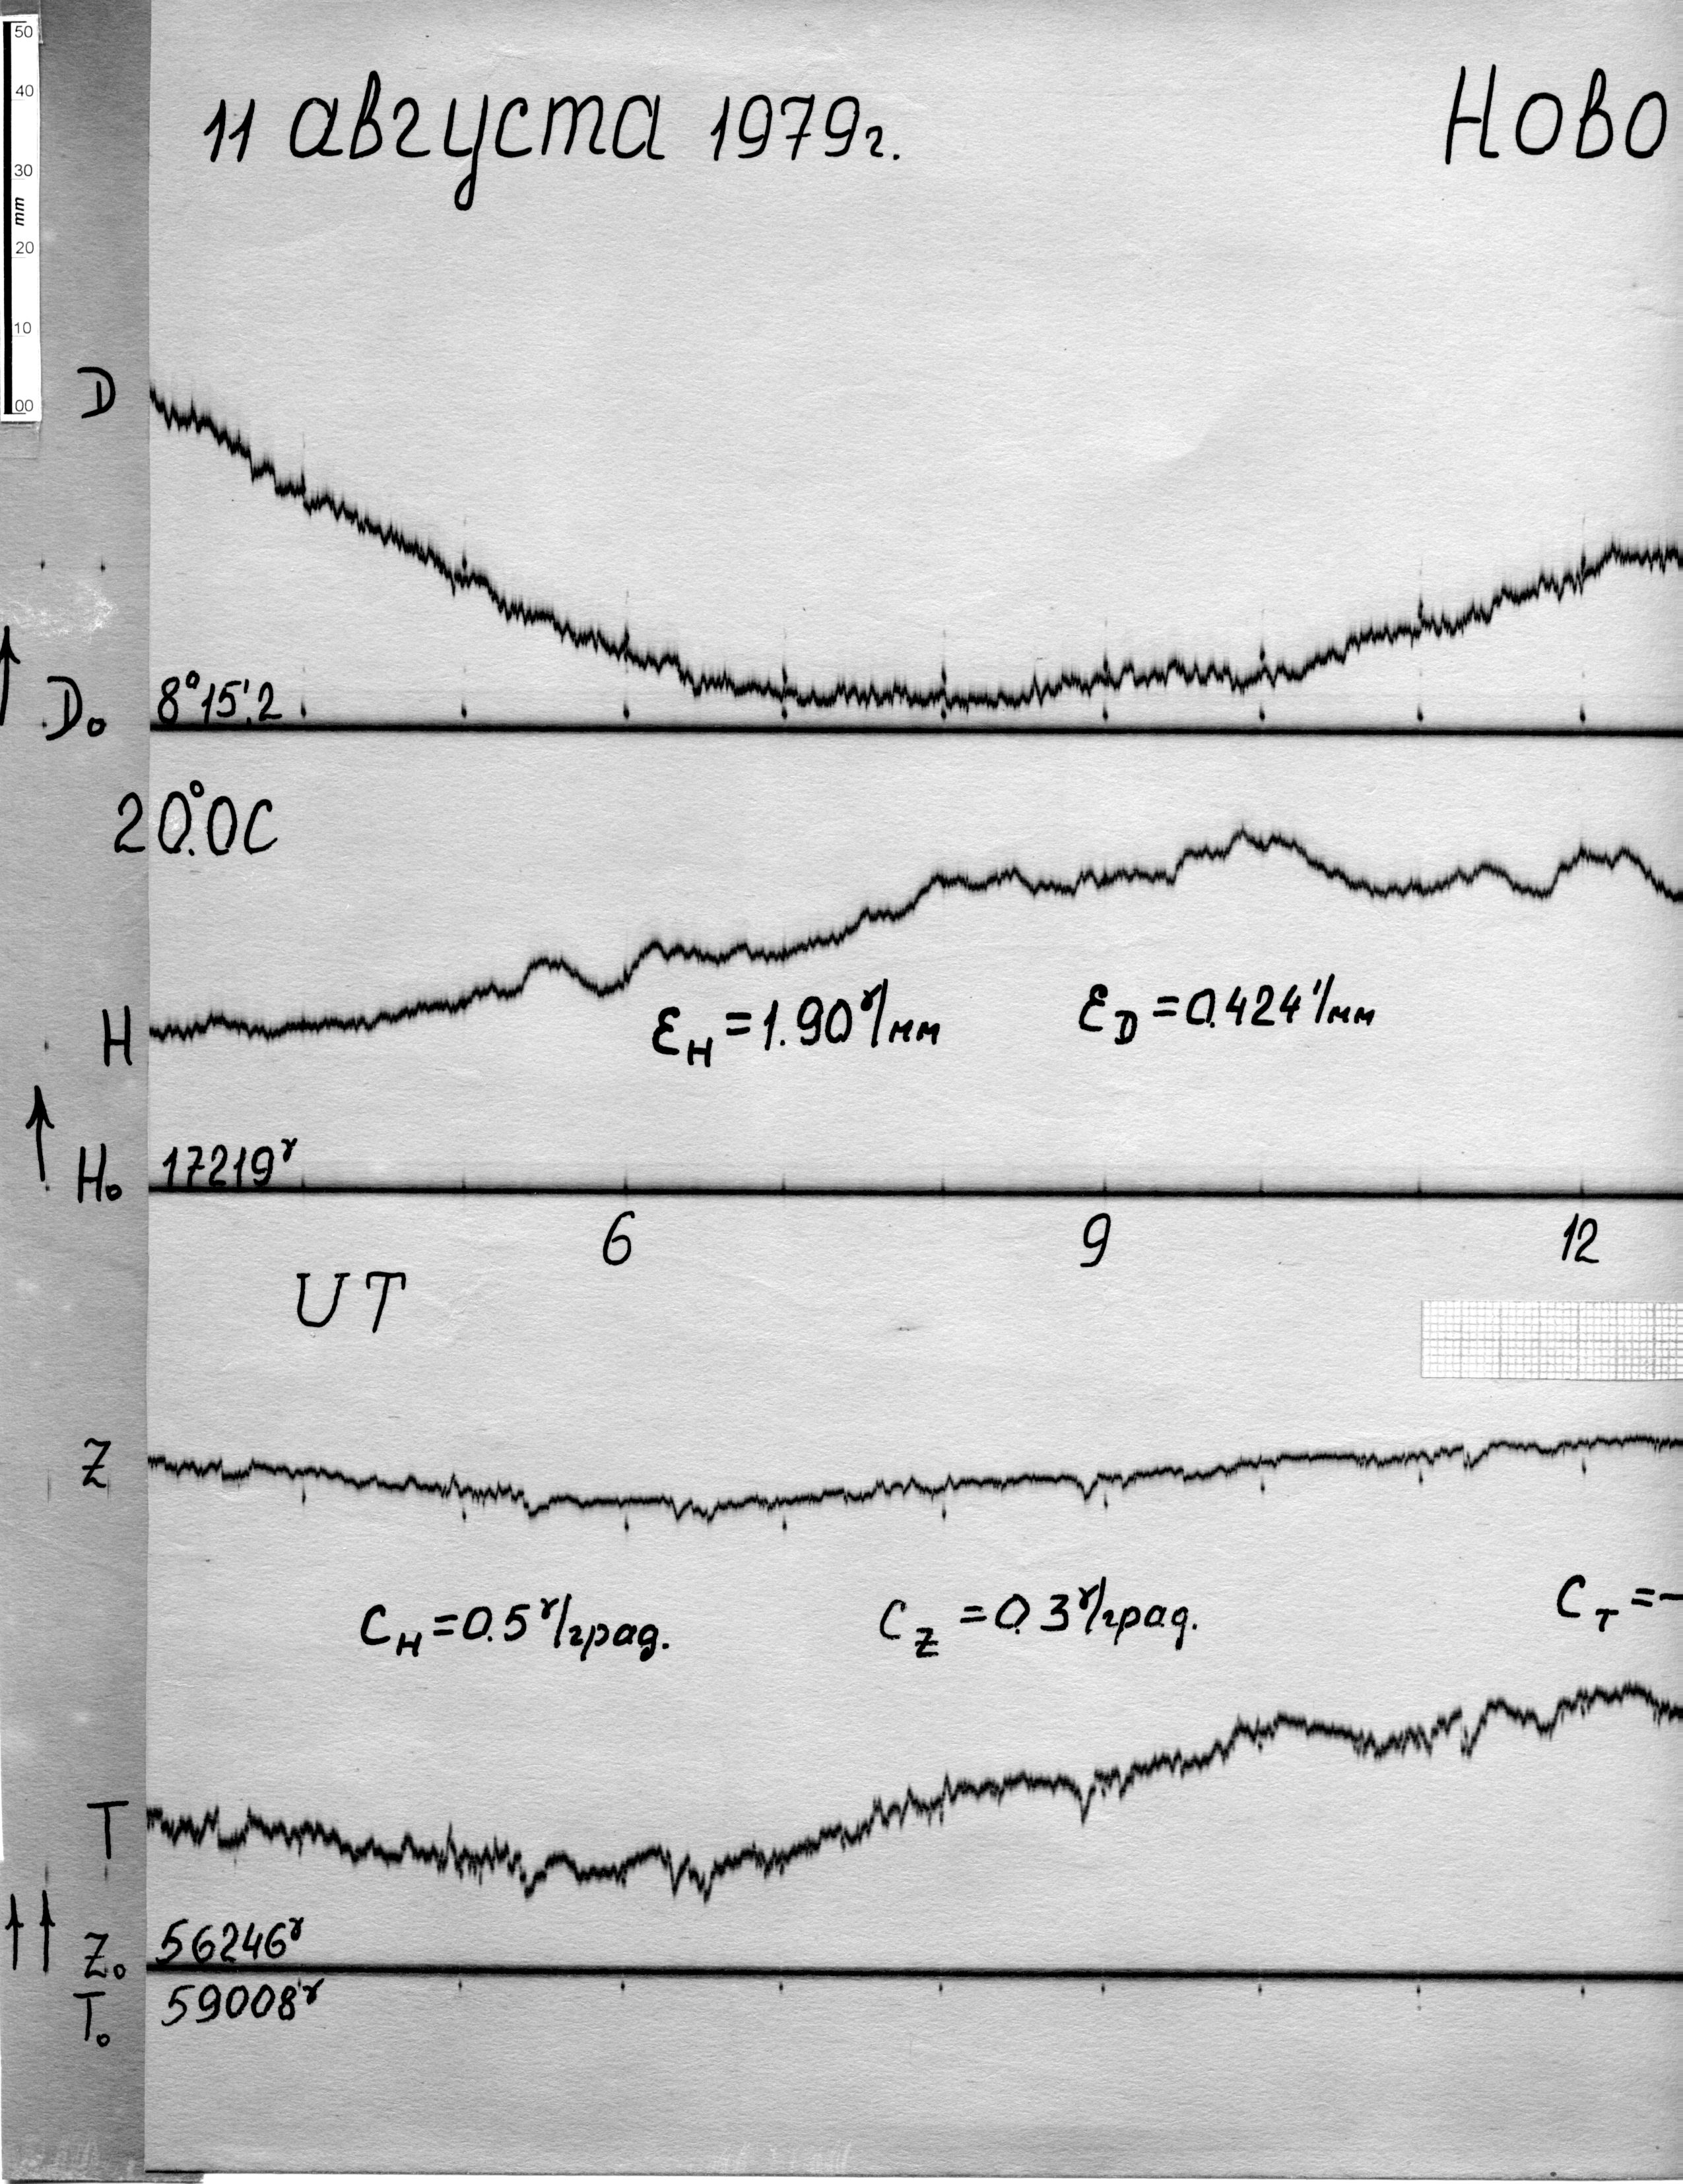 50
40
30
mm
20
10
00
11 августа 1979г.
Ново
D
D₀ 8°15'.2
20°.0С
H
ε_H = 1.90 γ/мм
ε_D = 0.424'/мм
H₀ 17219γ
6 9 12
UT
Z
C_H = 0.5 γ/град.
C_Z = 0.3 γ/град.
C_T = -
T
Z₀ 56246γ
T₀ 59008γ